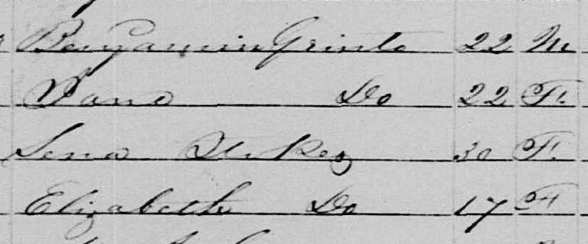 Benjamin Grinto 22 M
Jane Do 22 F.
Lena 30 F.
Elizabeth Do 17 F